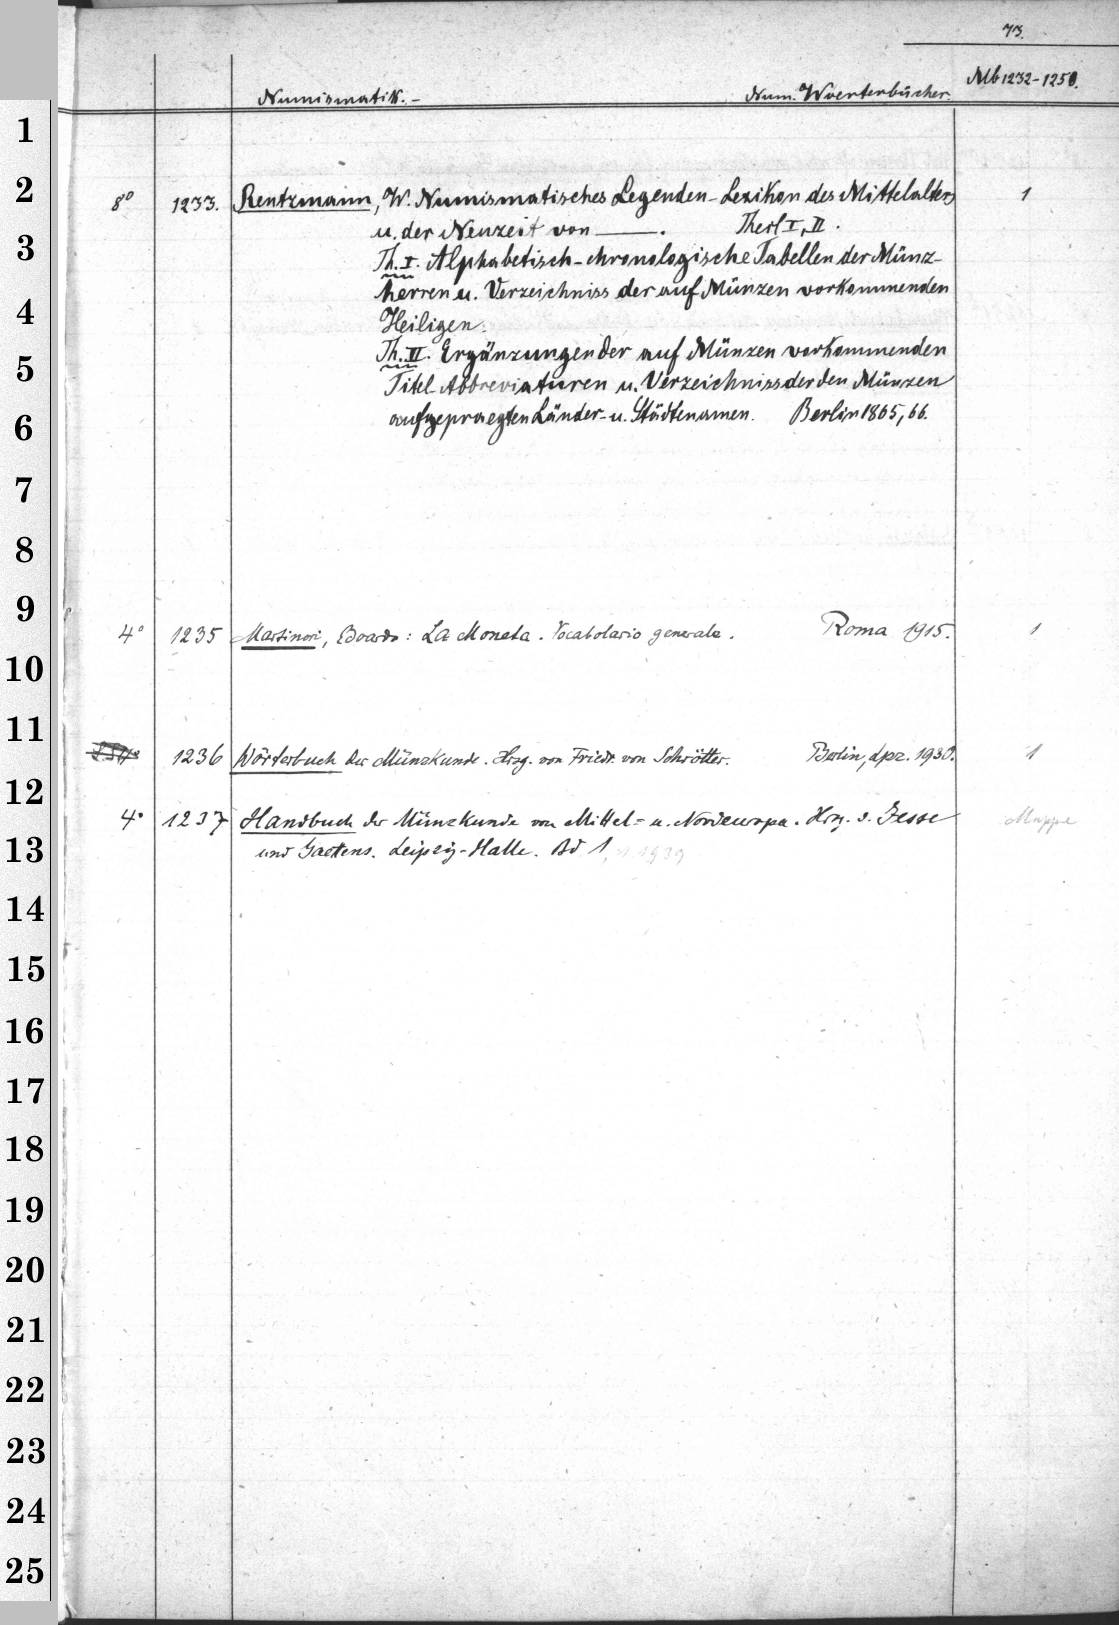 73.
Numismatik.- Num. Woerterbücher. Mb 1232-1250.
8° 1233. Rentzmann, W. Numismatisches Legenden-Lexikon des Mittelalters 1
u. der Neuzeit von ——. Theil I, II.
Th. I. Alphabetisch-chronologische Tabellen der Münz-
herren u. Verzeichniss der auf Münzen vorkommenden
Heiligen.
Th. II. Ergänzungen der auf Münzen vorkommenden
Titel Abbreviaturen u. Verzeichniss der den Münzen
aufgepraegten Länder- u. Städtenamen. Berlin 1865, 66.
4° 1235 Martinori, Edoardo: La Moneta. Vocabolario generale. Roma 1915. 1
1236 Wörterbuch der Münzkunde. Hrsg. von Friedr. von Schrötter. Berlin, Lpz. 1930. 1
4° 1237 Handbuch der Münzkunde von Mittel= u. Nordeuropa. Hrsg. v. Jesse Mappe
und Gaettens. Leipzig-Halle. Bd 1, 1939
1
2
3
4
5
6
7
8
9
10
11
12
13
14
15
16
17
18
19
20
21
22
23
24
25